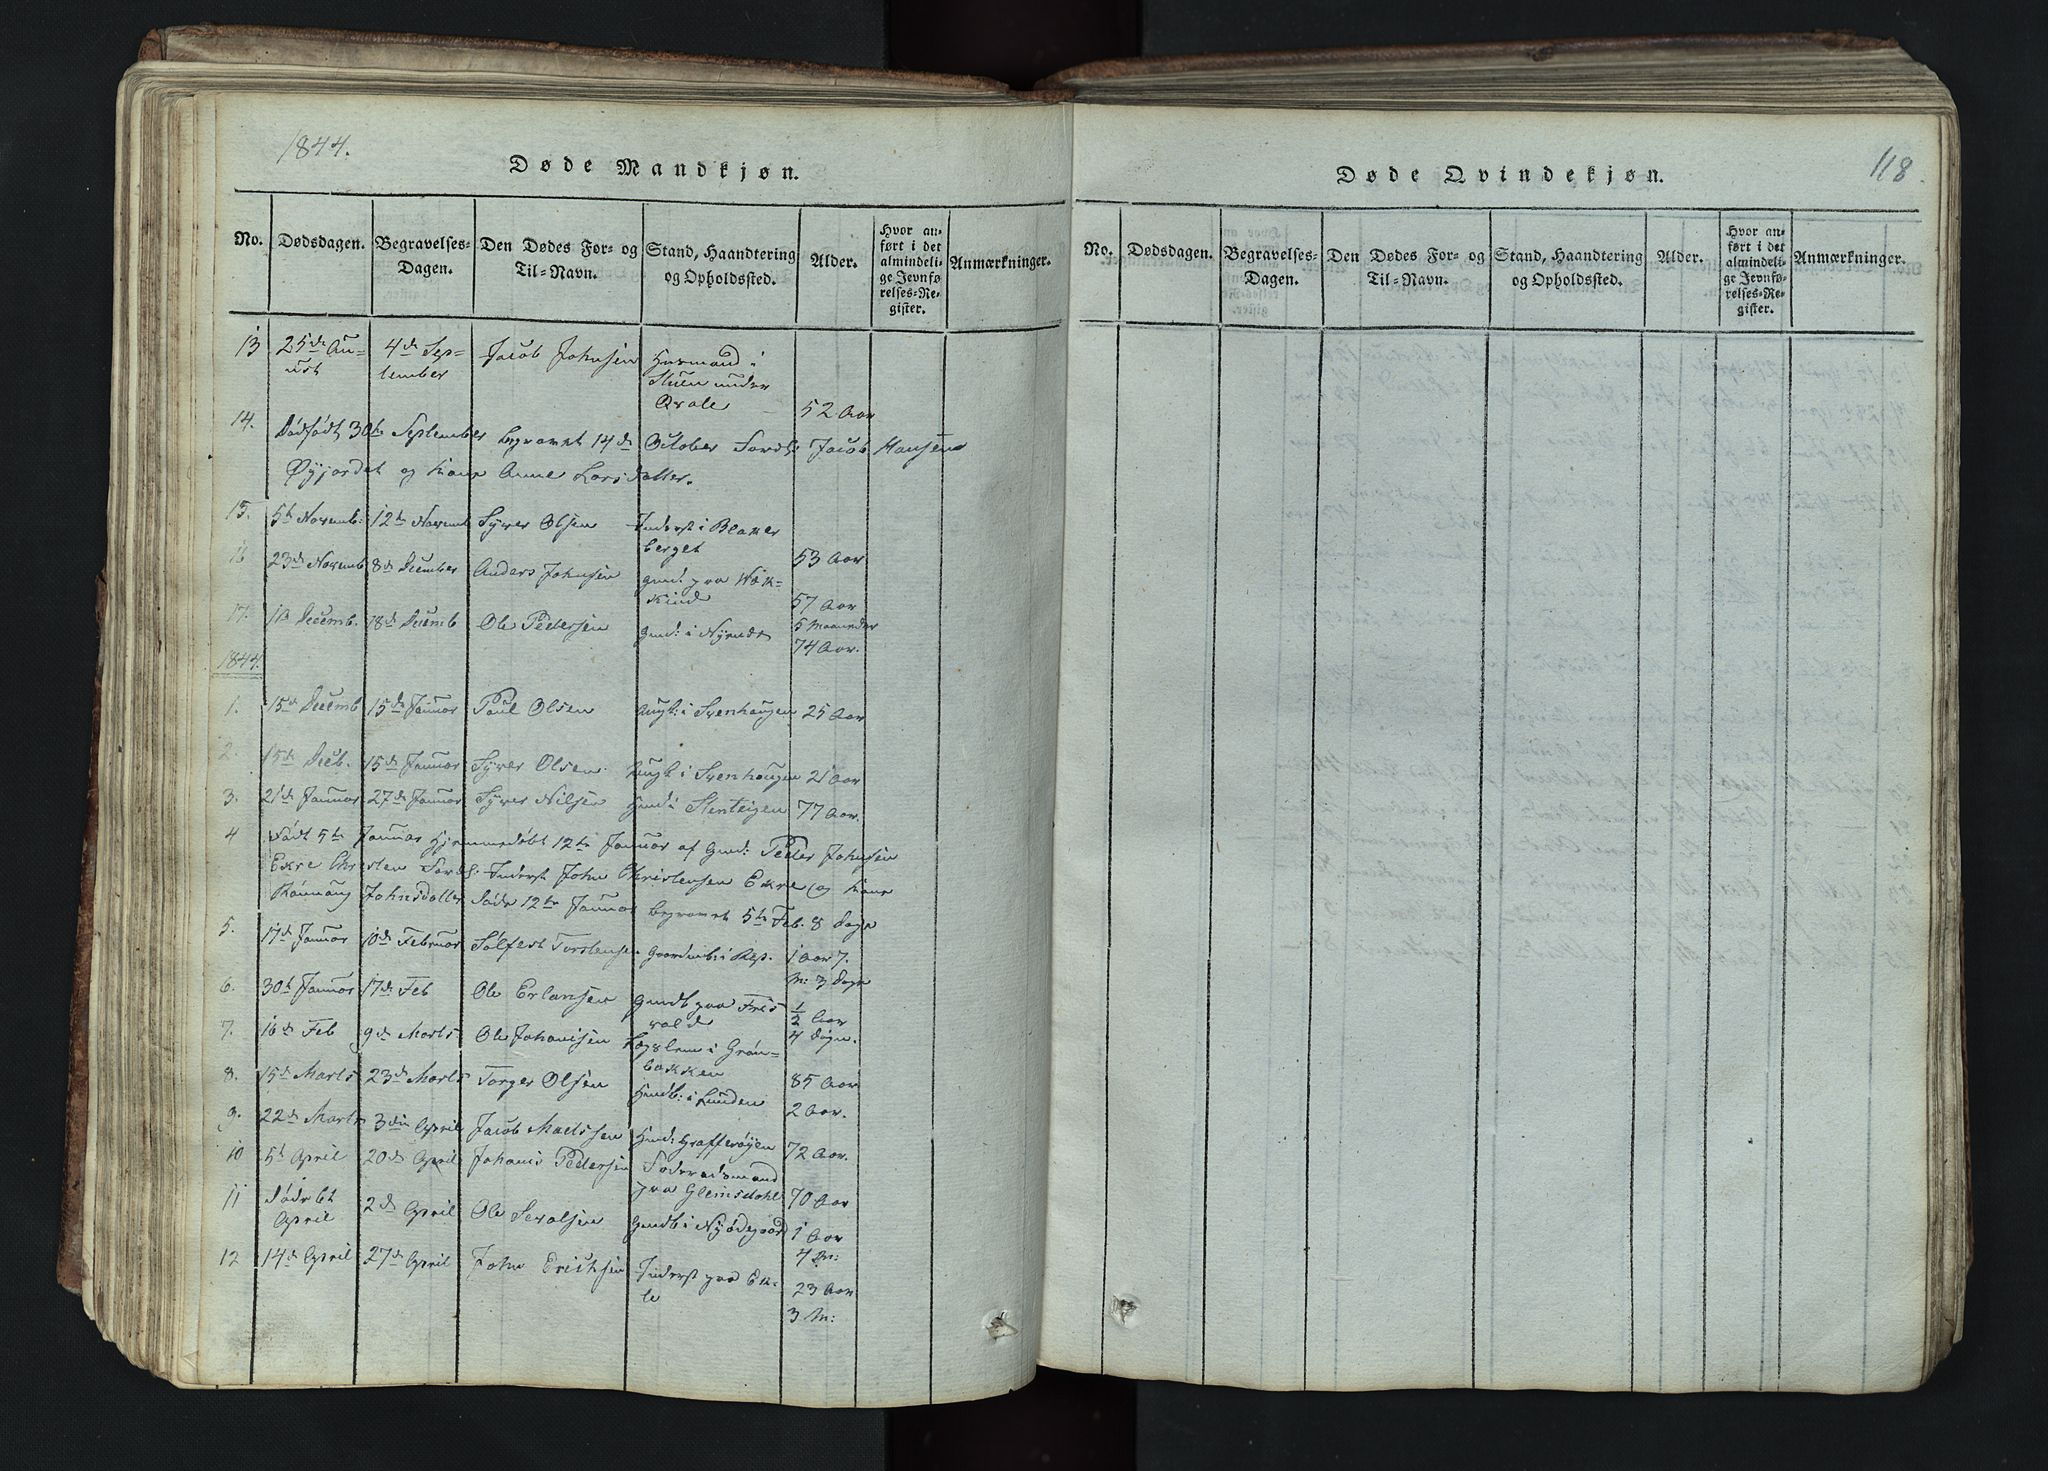 1844.
Døde Mandkjøn.
No. Dødsdagen. Begravelses-Dagen. Den Dødes For- og Til-Navn. Stand, Haandtering og Opholdssted. Alder. Hvor anført i det almindelige Jevnførelses-Register. Anmærkninger.
13 25de Au- 4de Sep- Jacob Johnsen Huusmand i
ust tember Stuen under
Qvale 52 Aar
14. Dødfødt 30te September begravet 14de October Forel: Jacob Hansen
Øyjordet og Kone Anne Larsdatter.
15. 5te Novemb: 12te Novemb Syver Olsen Inderst i Blaker
berget 53 Aar
16 23de Novemb 8de December Anders Johnsen
57 Aar
17. 11 Decemb. 18de Decemb Ole Pedersen 5 Maaneder
74 Aar.
1844.
1. 15de Decemb 15de Januar Paul Olsen Ungk: i Svenhaugen 25 Aar
2. 15de Decb. 15de Januar Syver Olsen Ungk i Svenhaugen 21 Aar
3. 21de Januar 27de Januar Syver Nilsen 77 Aar.
4 Født 5te Januar Hjemmedøbt 12te Januar af Gmd: Peder Johnsen
Ekre Christen Forel: Inderst John Christensen Ekre og Kone
Rønnaug Johnsdatter Døde 12te Januar begravet 5te Feb. 8 Dage
5. 17de Januar 10de Februar Sølfest Torstensen 1 Aar 7.
M: 3 Dage
6. 30te Januar 17de Feb Ole Erlansen
1/2 Aar
7. 16de Feb 9de Marts Ole Johanisen Lægslem i Grøn- 4 Døgn.
bakken 85 Aar
8. 15de Marts 23de Marts Torger Olsen Husmb: i Lunden 2 Aar.
9. 22de Marts 3die April Jacob Madssen 72 Aar.
10 5te April 20de April Johanis Pedersen Føderaadsmand
paa Gleinsdahl 70 Aar
11 Døde 6te 2de April Ole 1 Aar
April 4 M:
12 14de April 27de April John Erichsen Inderst paa Ek- 23 Aar
le 3 M:
118
Døde Qvindekjøn.
No. Dødsdagen. Begravelses-Dagen. Den Dødes For- og Til-Navn. Stand, Haandtering og Opholdssted. Alder. Hvor anført i det almindelige Jevnførelses-Register. Anmærkninger.